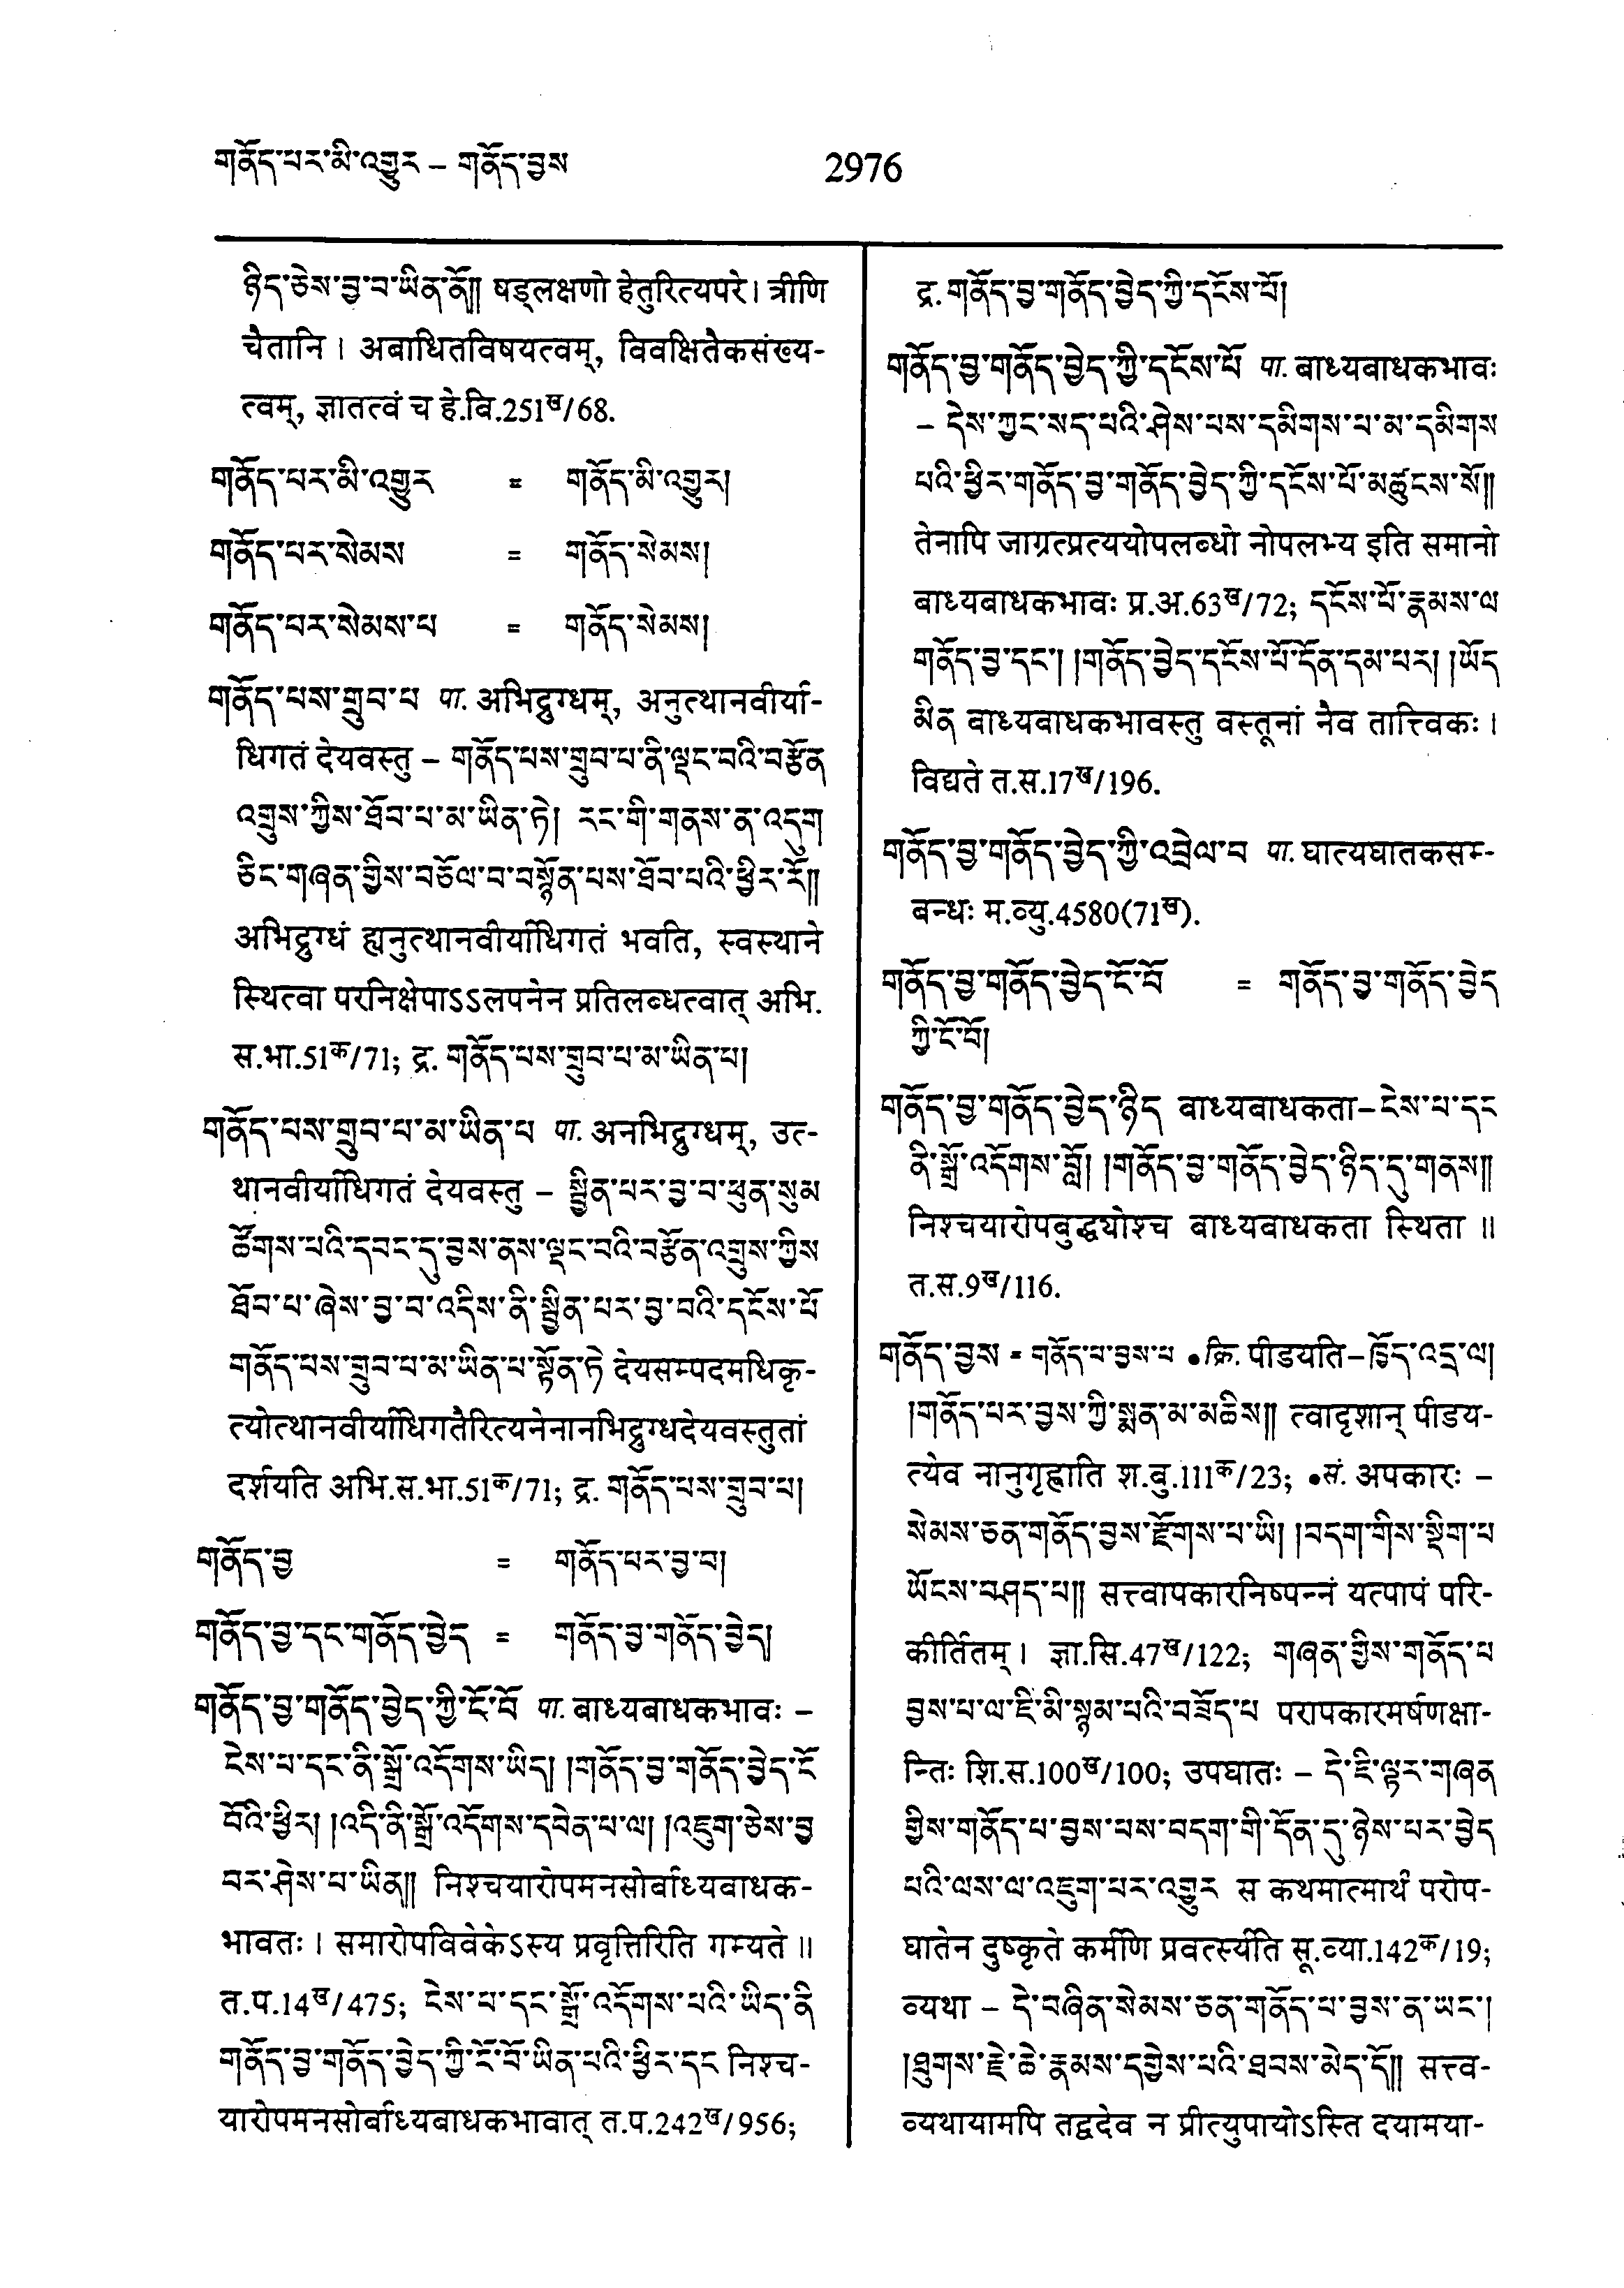 གནོད་པར་མི་འགྱུར – གནོད་བྱས
2976
ཉིད་ཅེས་བྱ་བ་ཡིན་ནོ།། षड्लक्षणो हेतुरित्यपरे। त्रीणि
चैतानि । अबाधितविषयत्वम्, विवक्षितैकसंख्य-
त्वम्, ज्ञातत्वं च हे.वि.251ख/68.
གནོད་པར་མི་འགྱུར = གནོད་མི་འགྱུར།
གནོད་པར་སེམས = གནོད་སེམས།
གནོད་པར་སེམས་པ = གནོད་སེམས།
གནོད་པས་གྲུབ་པ पा. अभिद्रुग्धम्, अनुत्थानवीर्या-
धिगतं देयवस्तु – གནོད་པས་གྲུབ་པ་ནི་ལྡང་བའི་བརྩོན
འགྲུས་ཀྱིས་ཐོབ་པ་མ་ཡིན་ཏེ། རང་གི་གནས་ན་འདུག
ཅིང་གཞན་གྱིས་བཅོལ་བ་བསྙོན་པས་ཐོབ་པའི་ཕྱིར་རོ།།
अभिद्रुग्धं ह्यनुत्थानवीर्याधिगतं भवति, स्वस्थाने
स्थित्वा परनिक्षेपाऽऽलपनेन प्रतिलब्धत्वात् अभि.
स.भा.51क/71; द्र. གནོད་པས་གྲུབ་པ་མ་ཡིན་པ།
གནོད་པས་གྲུབ་པ་མ་ཡིན་པ पा. अनभिद्रुग्धम्, उत-
थानवीर्याधिगतं देयवस्तु – སྦྱིན་པར་བྱ་བ་ཕུན་སུམ
ཚོགས་པའི་དབང་དུ་བྱས་ནས་ལྡང་བའི་བརྩོན་འགྲུས་ཀྱིས
ཐོབ་པ་ཞེས་བྱ་བ་འདིས་ནི་སྦྱིན་པར་བྱ་བའི་དངོས་པོ
གནོད་པས་གྲུབ་པ་མ་ཡིན་པ་སྟོན་ཏེ देयसम्पदमधिकृ-
त्योत्थानवीर्याधिगतैरित्यनेनानभिद्रुग्धदेयवस्तुतां
दर्शयति अभि.स.भा.51क/71; द्र. གནོད་པས་གྲུབ་པ།
གནོད་བྱ = གནོད་པར་བྱ་བ།
གནོད་བྱ་དང་གནོད་བྱེད = གནོད་བྱ་གནོད་བྱེད།
གནོད་བྱ་གནོད་བྱེད་ཀྱི་ངོ་བོ पा. बाध्यबाधकभावः –
ངེས་པ་དང་ནི་སྒྲོ་འདོགས་ཡིད། །གནོད་བྱ་གནོད་བྱེད་ངོ
བོའི་ཕྱིར། །འདི་ནི་སྒྲོ་འདོགས་དབེན་པ་ལ། །འཇུག་ཅེས་བྱ
བར་ཤེས་པ་ཡིན།། निश्चयारोपमनसोर्बाध्यबाधक-
भावतः । समारोपविवेकेऽस्य प्रवृत्तिरिति गम्यते ॥
त.प.14ख/475; ངེས་པ་དང་སྒྲོ་འདོགས་པའི་ཡིད་ནི
གནོད་བྱ་གནོད་བྱེད་ཀྱི་ངོ་བོ་ཡིན་པའི་ཕྱིར་དང निश्च-
यारोपमनसोर्बाध्यबाधकभावात् त.प.242ख/956;
द्र. གནོད་བྱ་གནོད་བྱེད་ཀྱི་དངོས་པོ།
གནོད་བྱ་གནོད་བྱེད་ཀྱི་དངོས་པོ पा. बाध्यबाधकभावः
– དེས་ཀྱང་སད་པའི་ཤེས་པས་དམིགས་པ་མ་དམིགས
པའི་ཕྱིར་གནོད་བྱ་གནོད་བྱེད་ཀྱི་དངོས་པོ་མཚུངས་སོ།།
तेनापि जाग्रत्प्रत्ययोपलब्धो नोपलभ्य इति समानो
बाध्यबाधकभावः प्र.अ.63ख/72; དངོས་པོ་རྣམས་ལ
གནོད་བྱ་དང་། །གནོད་བྱེད་དངོས་པོ་དོན་དམ་པར། །ཡོད
མིན बाध्यबाधकभावस्तु वस्तूनां नैव तात्त्विकः ।
विद्यते त.स.17ख/196.
གནོད་བྱ་གནོད་བྱེད་ཀྱི་འབྲེལ་བ पा. घात्यघातकसम-
बन्धः म.व्यु.4580(71ख).
གནོད་བྱ་གནོད་བྱེད་ངོ་བོ = གནོད་བྱ་གནོད་བྱེད
ཀྱི་ངོ་བོ།
གནོད་བྱ་གནོད་བྱེད་ཉིད बाध्यबाधकता– ངེས་པ་དང
ནི་སྒྲོ་འདོགས་བློ། །གནོད་བྱ་གནོད་བྱེད་ཉིད་དུ་གནས།།
निश्चयारोपबुद्ध्योश्च बाध्यबाधकता स्थिता ॥
त.स.9ख/116.
གནོད་བྱས = གནོད་པ་བྱས་པ •क्रि. पीडयति– ཁྱོད་འདྲ་ལ།
།གནོད་པར་བྱས་ཀྱི་སྨན་མ་མཆིས།། त्वादृशान् पीडय-
त्येव नानुगृह्णाति श.बु.111क/23; •सं. अपकारः –
སེམས་ཅན་གནོད་བྱས་རྫོགས་པ་ཡི། །བདག་གིས་སྡིག་པ
ཡོངས་བཤད་པ།། सत्त्वापकारनिष्पन्नं यत्पापं परि-
कीर्तितम् । ज्ञा.सि.47ख/122; གཞན་གྱིས་གནོད་པ
བྱས་པ་ལ་ཇི་མི་སྙམ་པའི་བཟོད་པ परापकारमर्षणक्षा-
न्तिः शि.स.100ख/100; उपघातः – དེ་ཇི་ལྟར་གཞན
གྱིས་གནོད་པ་བྱས་པས་བདག་གི་དོན་དུ་ཉེས་པར་བྱེད
པའི་ལས་ལ་འཇུག་པར་འགྱུར स कथमात्मार्थं परोप-
घातेन दुष्कृते कर्मणि प्रवर्त्स्यति सू.व्या.142क/19;
व्यथा – དེ་བཞིན་སེམས་ཅན་གནོད་པ་བྱས་ན་ཡང་།
།ཐུགས་རྗེ་ཆེ་རྣམས་དགྱེས་པའི་ཐབས་མེད་དོ།། सत्त्व-
व्यथायामपि तद्वदेव न प्रीत्युपायोऽस्ति दयामया-